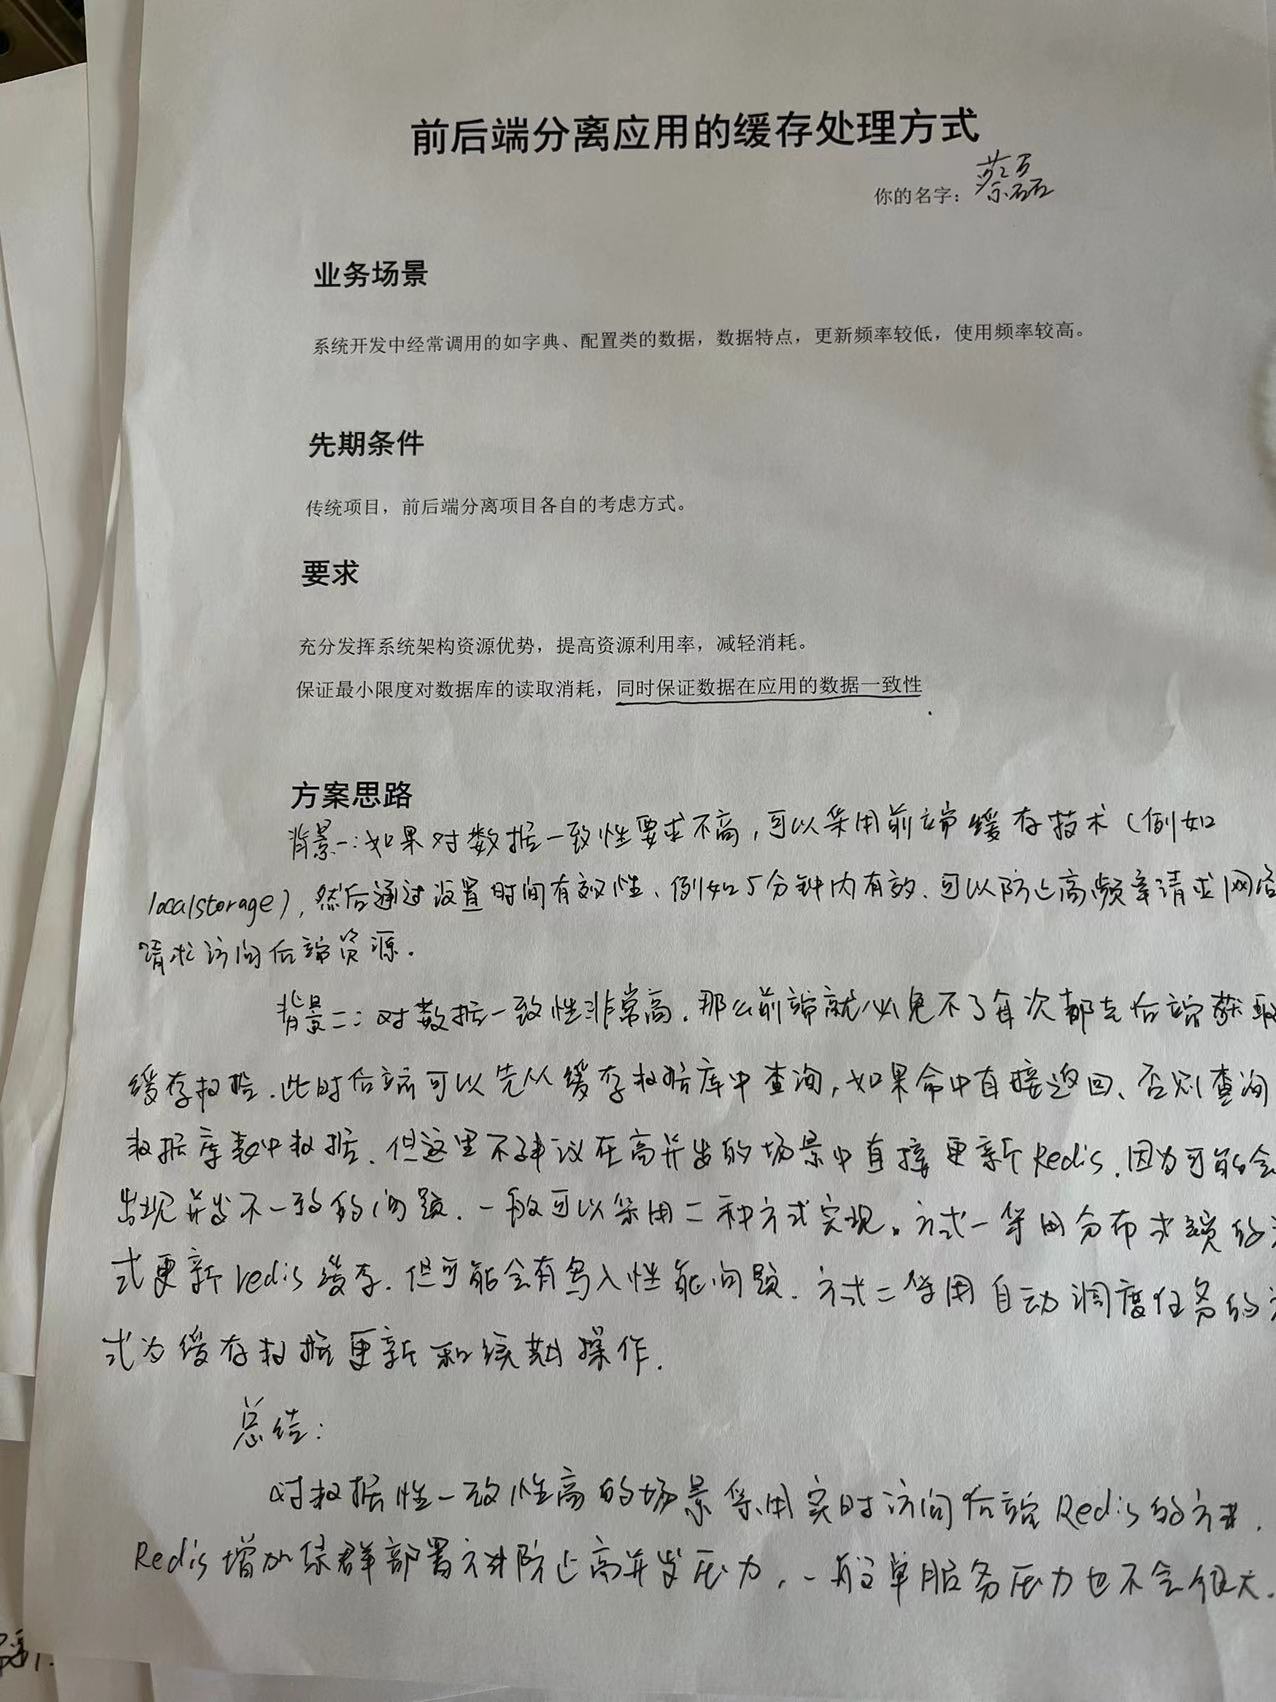 前后端分离应用的缓存处理方式
你的名字：蔡磊
业务场景
系统开发中经常调用的如字典、配置类的数据，数据特点，更新频率较低，使用频率较高。
先期条件
传统项目，前后端分离项目各自的考虑方式。
要求
充分发挥系统架构资源优势，提高资源利用率，减轻消耗。
保证最小限度对数据库的读取消耗，同时保证数据在应用的数据一致性
方案思路
背景一：如果对数据一致性要求不高，可以采用前端缓存技术（例如
localstorage），然后通过设置时间有效性、例如5分钟内有效、可以防止高频率请求网络
请求访问后端资源.
背景二：对数据一致性非常高，那么前端就必免不了每次都去后端获取
缓存数据，此时后端可以先从缓存数据库中查询，如果命中直接返回、否则查询
数据库表中数据、但这里不建议在高并发的场景中直接更新Redis，因为可能会
出现并发不一致的问题，一般可以采用二种方式实现。方式一采用分布式锁的
式更新redis缓存，但可能会有写入性能问题、方式二采用自动调度任务的
式为缓存数据更新和续期操作.
总结：
对数据性一致性高的场景采用实时访问后端Redis的方式，
Redis增加集群部署方式防止高并发压力，一般单服务压力也不会很大.